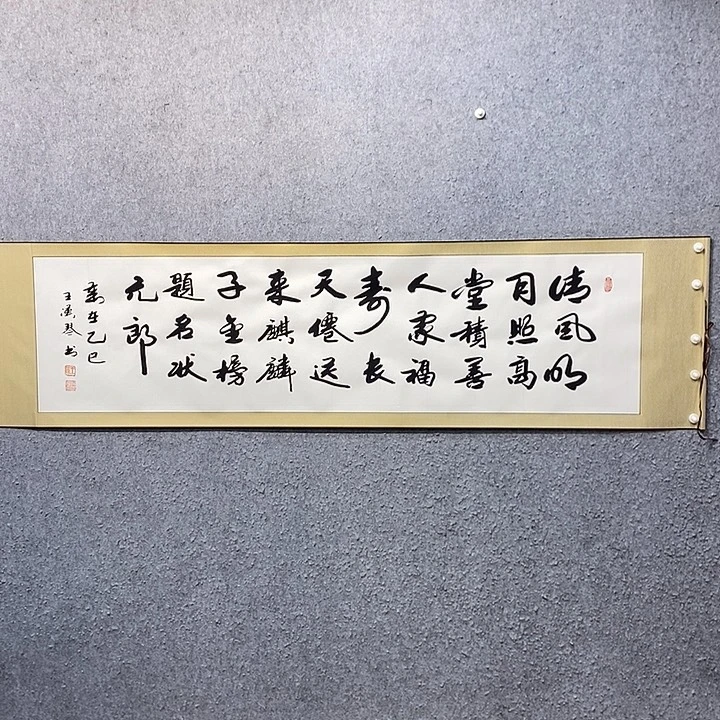 清風明
月照高
堂積善
人家福
壽長
天僊送
来麒麟
子金榜
題名状
元郎
歲在乙巳
王 琴书